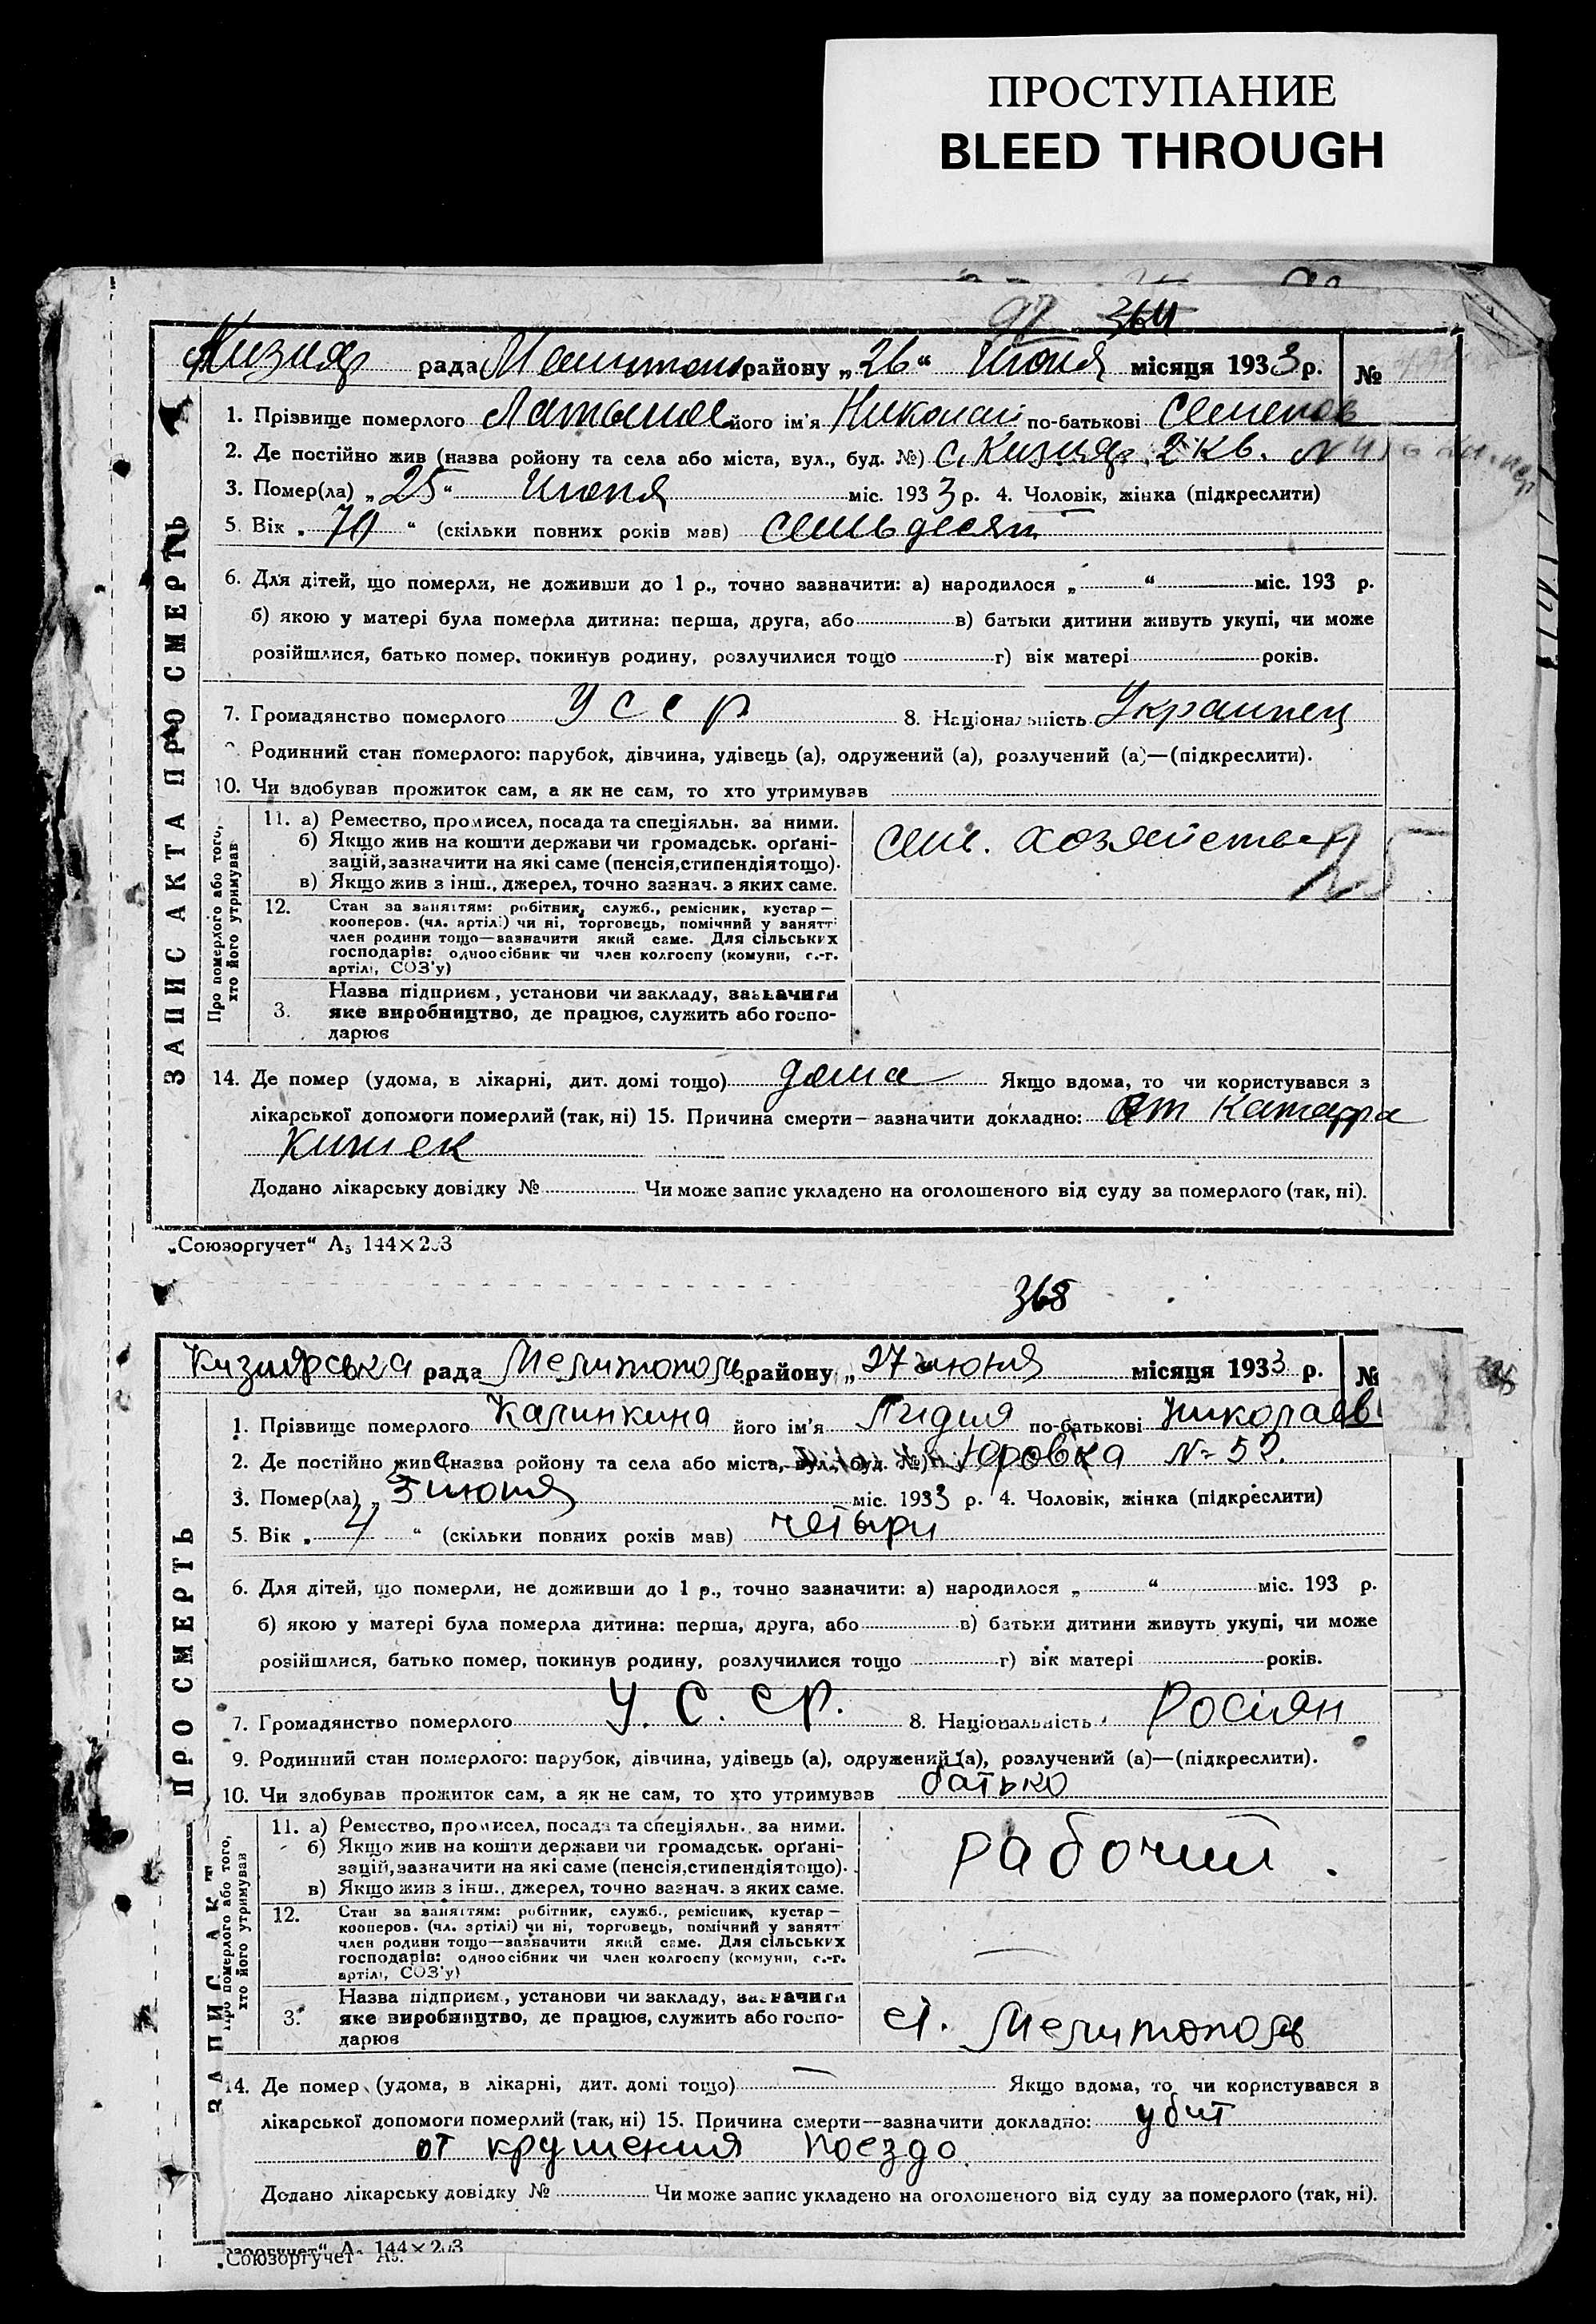 ПРОСТУПАНИЕ
BLEED THROUGH
97 364
Кизияр рада Мелитоп району „26“ Июня місяця 1933 р. №
1. Прізвище померлого його ім'я Николай по-батькові Семенов
2. Де постійно жив (назва ройону та села або міста, вул., буд. №) с. Кизияр. 2 кв. N
3. Помер(ла) „25“ Июня міс. 1933 р. 4. Чоловік, жінка (підкреслити)
5. Вік „70“ (скільки повних років мав) семьдесят
6. Для дітей, що померли, не доживши до 1 р., точно зазначити: а) народилося „ “ міс. 193 р.
б) якою у матері була померла дитина: перша, друга, або в) батьки дитини живуть укупі, чи може
розійшлися, батько помер, покинув родину, розлучилися тощо г) вік матері років.
7. Громадянство померлого УССР 8. Національність Украинец
Родинний стан померлого: парубок, дівчина, удівець (а), одружений (а), розлучений (а)—(підкреслити).
10. Чи здобував прожиток сам, а як не сам, то хто утримував
ЗАПИС АКТА ПРО СМЕРТЬ
Про померлого або того, хто його утримував
11. а) Ремество, промисел, посада та спеціяльн. за ними.
б) Якщо жив на кошти держави чи громадськ. орґані-
зацій, зазначити на які саме (пенсія, стипендія тощо).
в) Якщо жив з інш., джерел, точно зазнач. з яких саме.
сель. хозяйство
12. Стан за заняттям: робітник, служб., ремісник, кустар—
кооперов. (чл. артілі) чи ні, торговець, помічний у занятт
член родини тощо—зазначити який саме. Для сільських
господарів: одноосібник чи член колгоспу (комуни, с.-г.
артілі, СОЗ'у)
3. Назва підприєм., установи чи закладу, зазначити
яке виробництво, де працює, служить або госпо-
дарює
14. Де помер (удома, в лікарні, дит. домі тощо) дома Якщо вдома, то чи користувався з
лікарської допомоги померлий (так, ні) 15. Причина смерти—зазначити докладно: От катарра
Кишек
Додано лікарську довідку № Чи може запис укладено на оголошеного від суду за померлого (так, ні).
„Союзоргучет“ А₅ 144×203
368
Кизиярська рада Мелитополь району „27 июня місяця 1933 р. №
1. Прізвище померлого Калинкина його ім'я Лидия по-батькові Николаев
2. Де постійно жив (назва ройону та села або міста, вул., буд. №) Юровка N-52.
3. Помер(ла) „ 3 июня міс. 1933 р. 4. Чоловік, жінка (підкреслити)
5. Вік „ 4 “ (скільки повних років мав) четыри
6. Для дітей, що померли, не доживши до 1 р., точно зазначити: а) народилося „ “ міс. 193 р.
б) якою у матері була померла дитина: перша, друга, або в) батьки дитини живуть укупі, чи може
розійшлися, батько помер, покинув родину, розлучилися тощо г) вік матері років.
7. Громадянство померлого У.С.СР. 8. Національність Росіян
9. Родинний стан померлого: парубок, дівчина, удівець (а), одружений (а), розлучений (а)—(підкреслити).
10. Чи здобував прожиток сам, а як не сам, то хто утримував батько
ЗАПИС АКТ ПРО СМЕРТЬ
Про померлого або того, хто його утримував
11. а) Ремество, промисел, посада та спеціяльн. за ними.
б) Якщо жив на кошти держави чи громадськ. орґані-
зацій, зазначити на які саме (пенсія, стипендія тощо).
в) Якщо жив з інш., джерел, точно зазнач. з яких саме.
рабочий.
12. Стан за заняттям: робітник, служб., ремісник, кустар—
кооперов. (чл. артілі) чи ні, торговець, помічний у занятт
член родини тощо—зазначити який саме. Для сільських
господарів: одноосібник чи член колгоспу (комуни, с.-г.
артілі, СОЗ'у)
3. Назва підприєм., установи чи закладу, зазначити
яке виробництво, де працює, служить або госпо-
дарює
ст. Мелитополь
14. Де помер (удома, в лікарні, дит. домі тощо) Якщо вдома, то чи користувався в
лікарської допомоги померлий (так, ні) 15. Причина смерти—зазначити докладно: убит
от крушения поездо.
Додано лікарську довідку № Чи може запис укладено на оголошеного від суду за померлого (так, ні).
зоргучет“ А₅ 144×203
„Союзоргучет“ А₅.